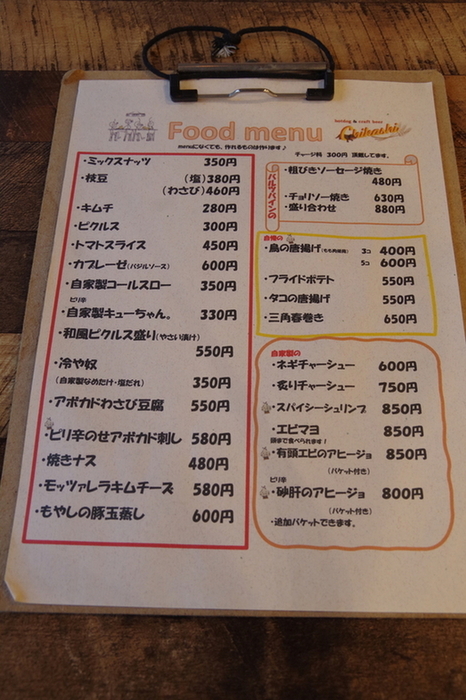 Food menu
menuになくても、作れるものは作ります♪
hotdog & craft beer
Chikashi
チャージ料 300円 頂戴してます。
・ミックスナッツ 350円
・枝豆 (塩)380円
(わさび)460円
・キムチ 280円
・ピクルス 300円
・トマトスライス 450円
・カプレーゼ(バジルソース) 600円
・自家製コールスロー 350円
ピリ辛
・自家製キューちゃん。 330円
・和風ピクルス盛り(やさい漬け)
550円
・冷や奴
(自家製なめたけ・塩だれ) 350円
・アボカドわさび豆腐 550円
・ピリ辛のせアボカド刺し 580円
・焼きナス 480円
・モッツァレラキムチーズ 580円
・もやしの豚玉蒸し 600円
バルツバインの
・粗びきソーセージ焼き
480円
・チョリソー焼き 630円
・盛り合わせ 880円
自慢の
・鳥の唐揚げ(もも肉使用) 3コ 400円
5コ 600円
・フライドポテト 550円
・タコの唐揚げ 550円
・三角春巻き 650円
自家製の
・ネギチャーシュー 600円
・炙りチャーシュー 750円
・スパイシーシュリンプ 850円
・エビマヨ 850円
頭まで食べられます!
・有頭エビのアヒージョ 850円
(バケット付き)
ピリ辛
・砂肝のアヒージョ 800円
(バケット付き)
・追加バケットできます。